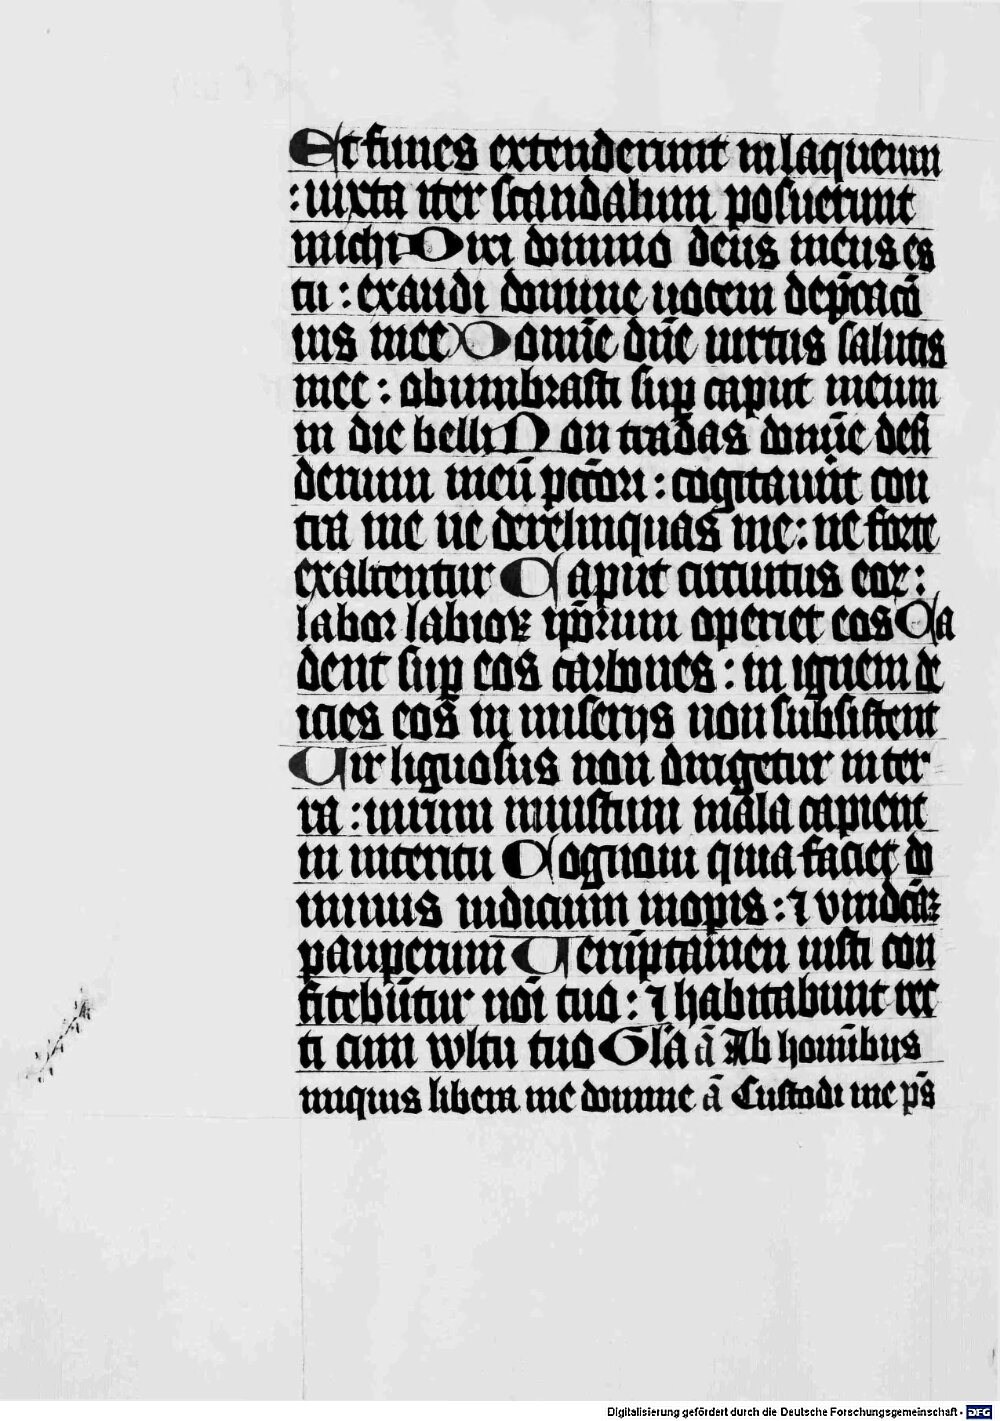 Et funes extenderunt in laqueum
: iuxta iter scandalum posuerunt
michi Dixi domino deus meus es
tu : exaudi domine uocem dep̄cacō
nis mee Domīe dn̄e uirtus salutis
mee : obumbrasti sup̱ caput meum
in die belli Non tradas domīe desi
derium meū pctōri : cogitauūt con
tra me ne derelinquas me : ne forte
exaltentur Caput circuitus eoꝝ :
labor labioꝝ ip̄orum operiet eos Ca
dent sup̱ eos carbones : in ignem de
icies eos in miserijs non subsistent
Uir liguosus non dirigetur in ter
ra : uirum iniustum mala capient
in interitu Cognoui quia faciet do
minus iudicium inopis : ⁊ vindcāꝫ
pauperum Uerūptamen iusti con
fitebūtur noī tuo : ⁊ habitabunt rec
ti cum wltu tuo Gl'a ā Ab homībus
iniquis libera me domine ā Custodi me ps̄
Digitalisierung gefördert durch die Deutsche Forschungsgemeinschaft - DFG